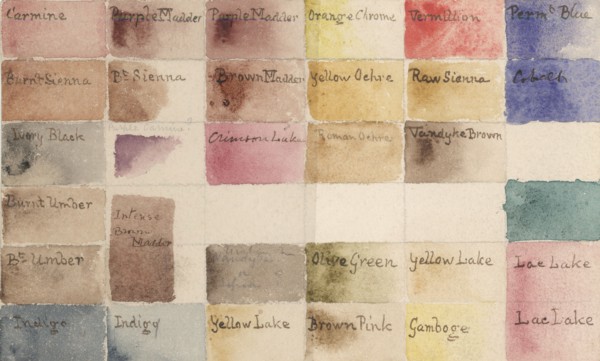 Carmine
Purple Madder
Purple Madder
Orange Chrome
Vermilion
Perm.t Blue
Burnt Sienna
Bt Sienna
Brown Madder
Yellow Ochre
Raw Sienna
Cobalt
Ivory Black
Crimson Lake
Roman Ochre
Vandyke Brown
Burnt Umber
Intense
Brown
Madder
Bt Umber
Olive Green
Yellow Lake
Lac Lake
Indigo
Indigo
Yellow Lake
Brown Pink
Gamboge
Lac Lake